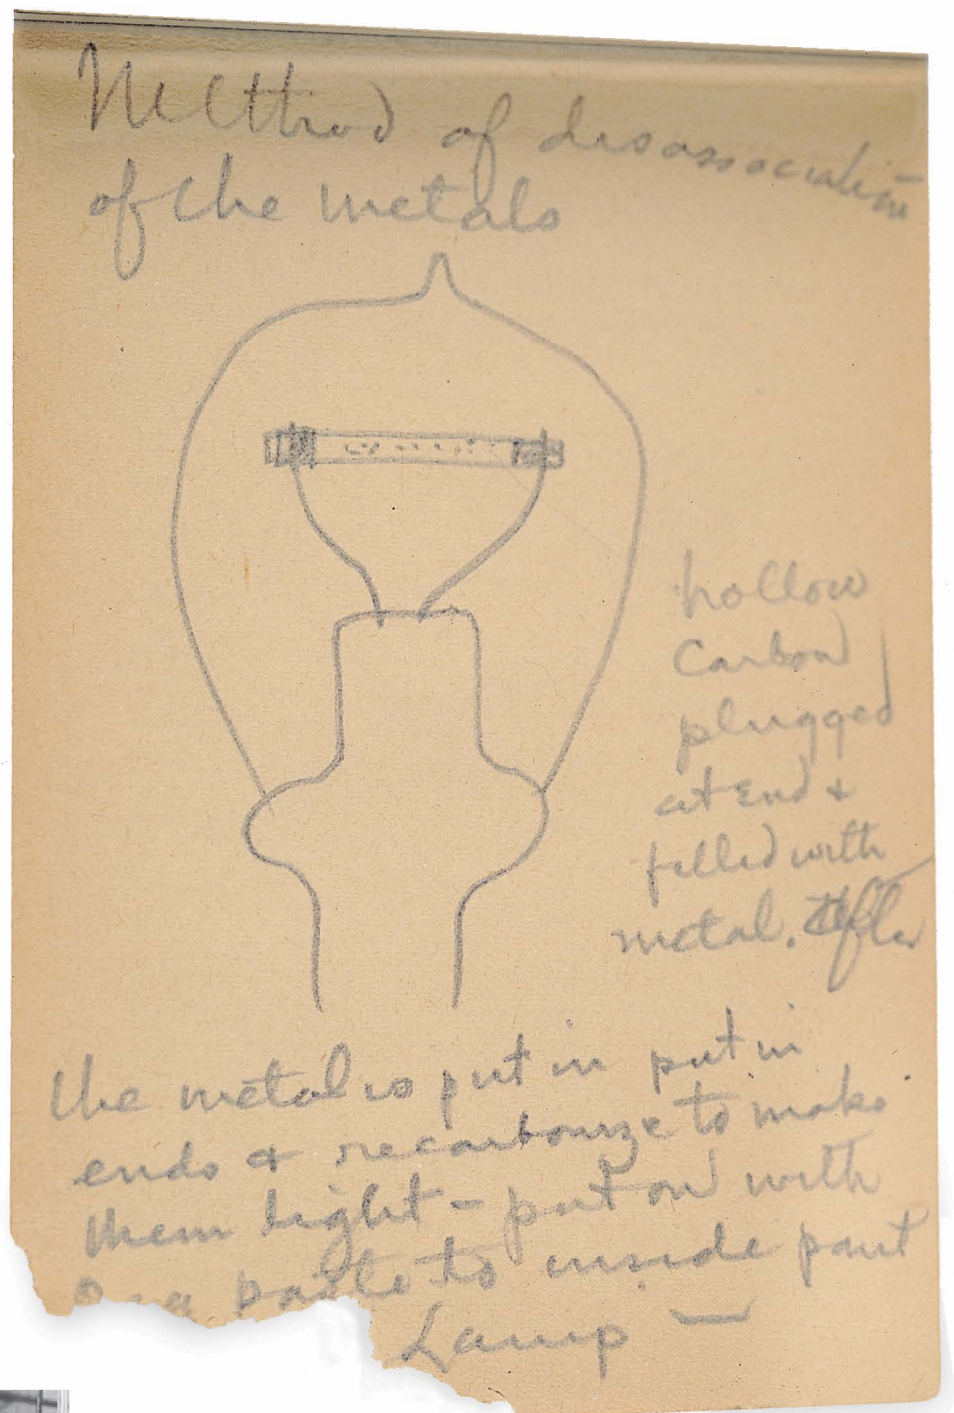 Method of disassociation
of the metals
hollow
Carbon
plugged
at end &
filled with
metal. After
the metal is put in put in
ends & recarbonize to make
them tight - put on with
paste to inside part
Lamp —